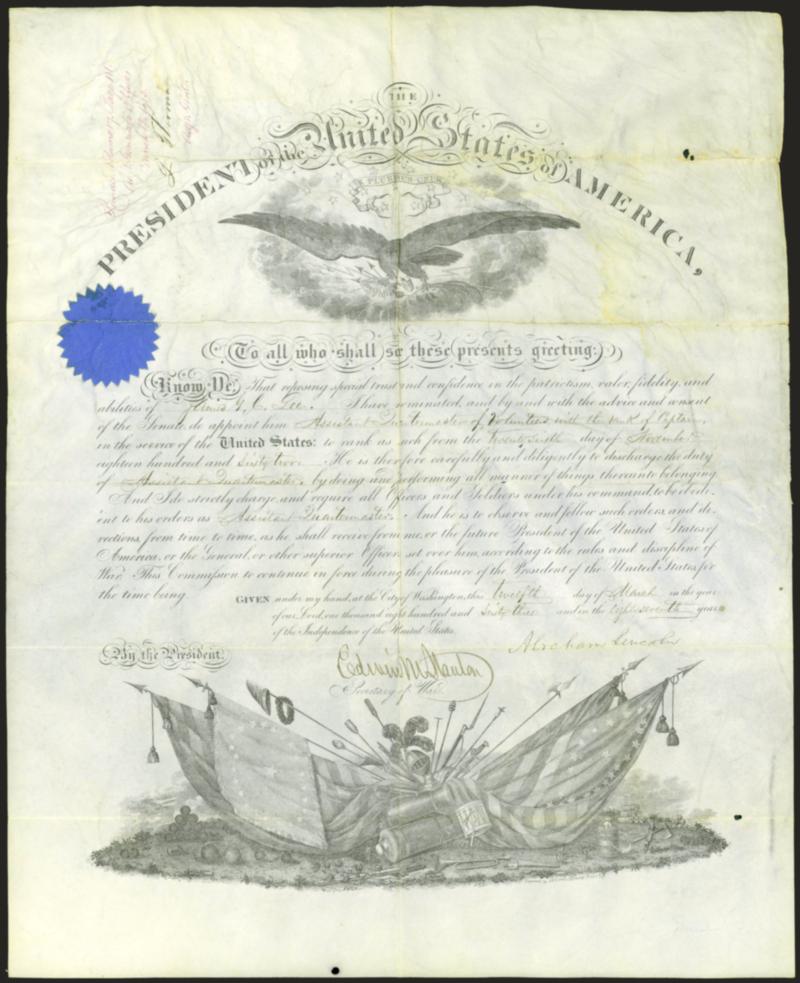 THE
United States
PRESIDENT of the of AMERICA,
E PLURIBUS UNUM
To all who shall see these presents greeting:
Know Ye, That reposing special trust and confidence in the patriotism, valor, fidelity, and
abilities of James G. C. Lee. I have nominated, and by and with the advice and consent
of the Senate, do appoint him Assistant Quartermaster of Volunteers with the rank of Captain,
in the service of the United States: to rank as such from the twenty sixth day of November
eighteen hundred and sixty two. He is therefore carefully and diligently to discharge the duty
of Assistant Quartermaster, by doing and performing all manner of things thereunto belonging.
And I do strictly charge, and require all Officers and Soldiers under his command, to be obedi-
ent to his orders as Assistant Quartermaster. And he is to observe and follow such orders, and di-
rections, from time to time, as he shall receive from me, or the future President of the United States of
America, or the General, or other superior Officers set over him, according to the rules and discipline of
War. This Commission to continue in force during the pleasure of the President of the United States, for
the time being.
GIVEN under my hand, at the City of Washington, this twelfth day of March in the year
of our Lord, one thousand eight hundred and sixty three and in the eighty seventh year
of the Independence of the United States.
Abraham Lincoln
By the President.
Edwin M Stanton
Secretary of War.